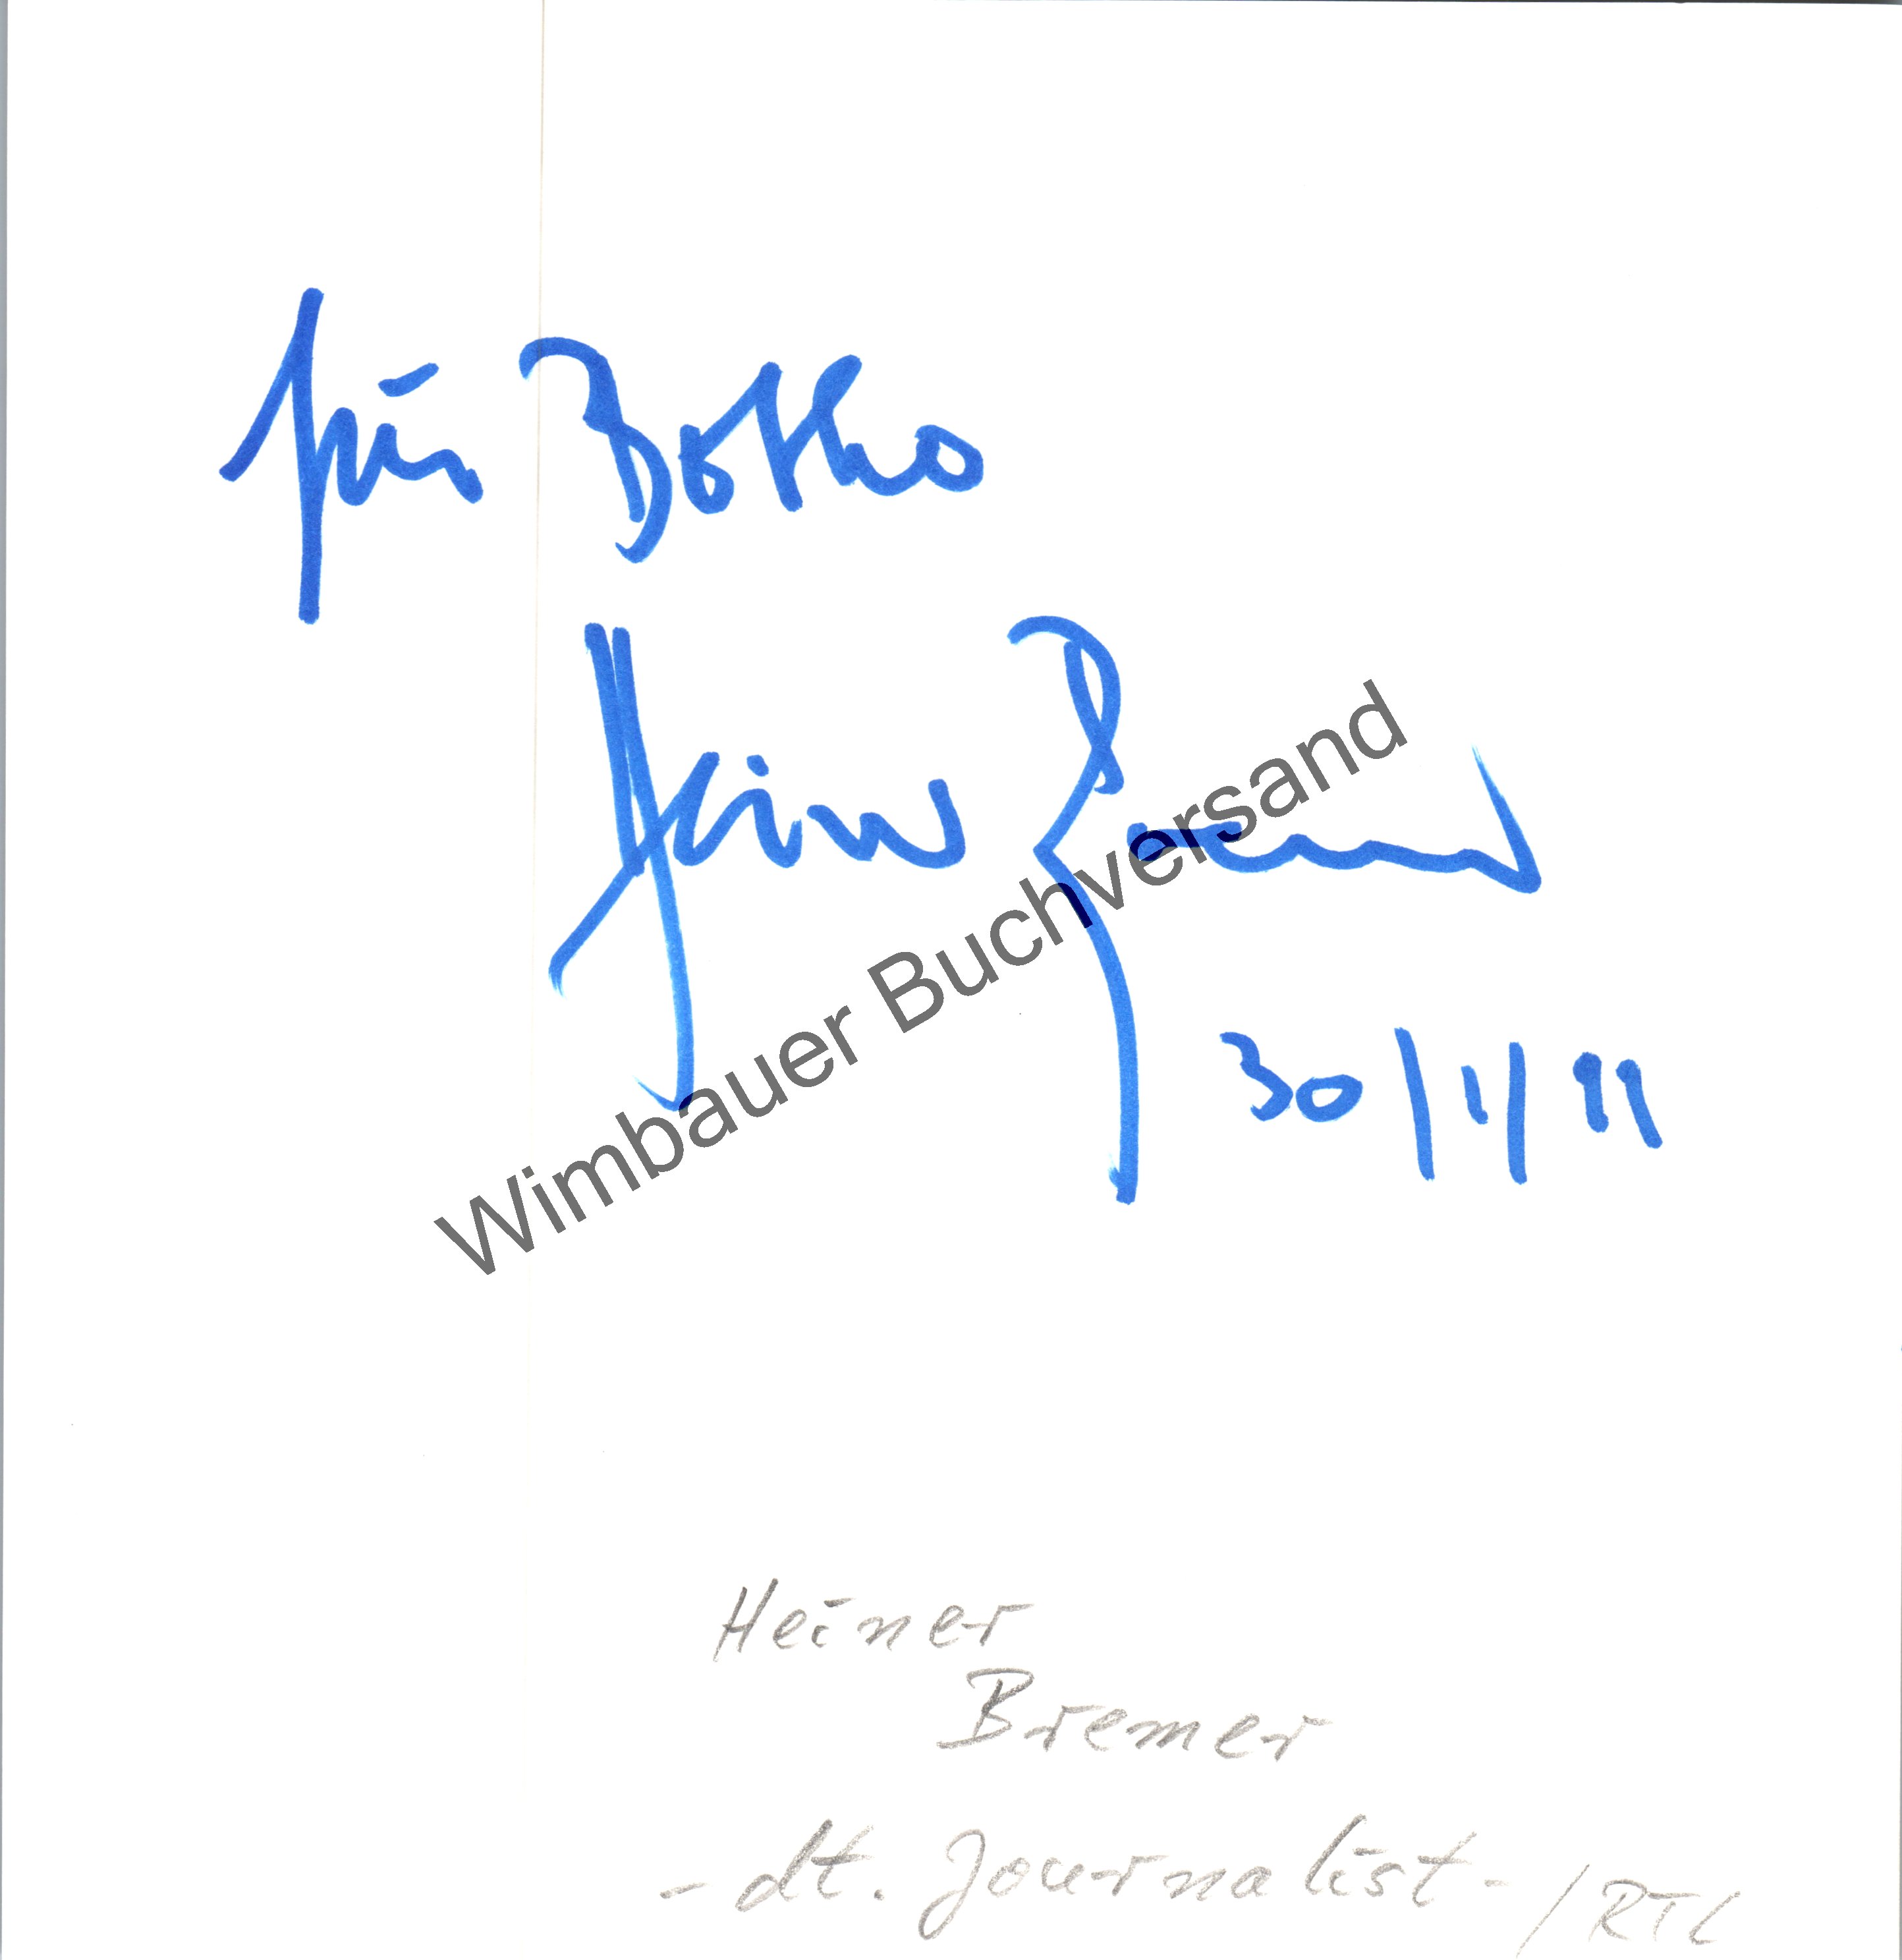 für Botho
Heiner Bremer
30/1/99
Wimbauer Buchversand
Heiner
Bremer
- dt. Journalist - / RTL